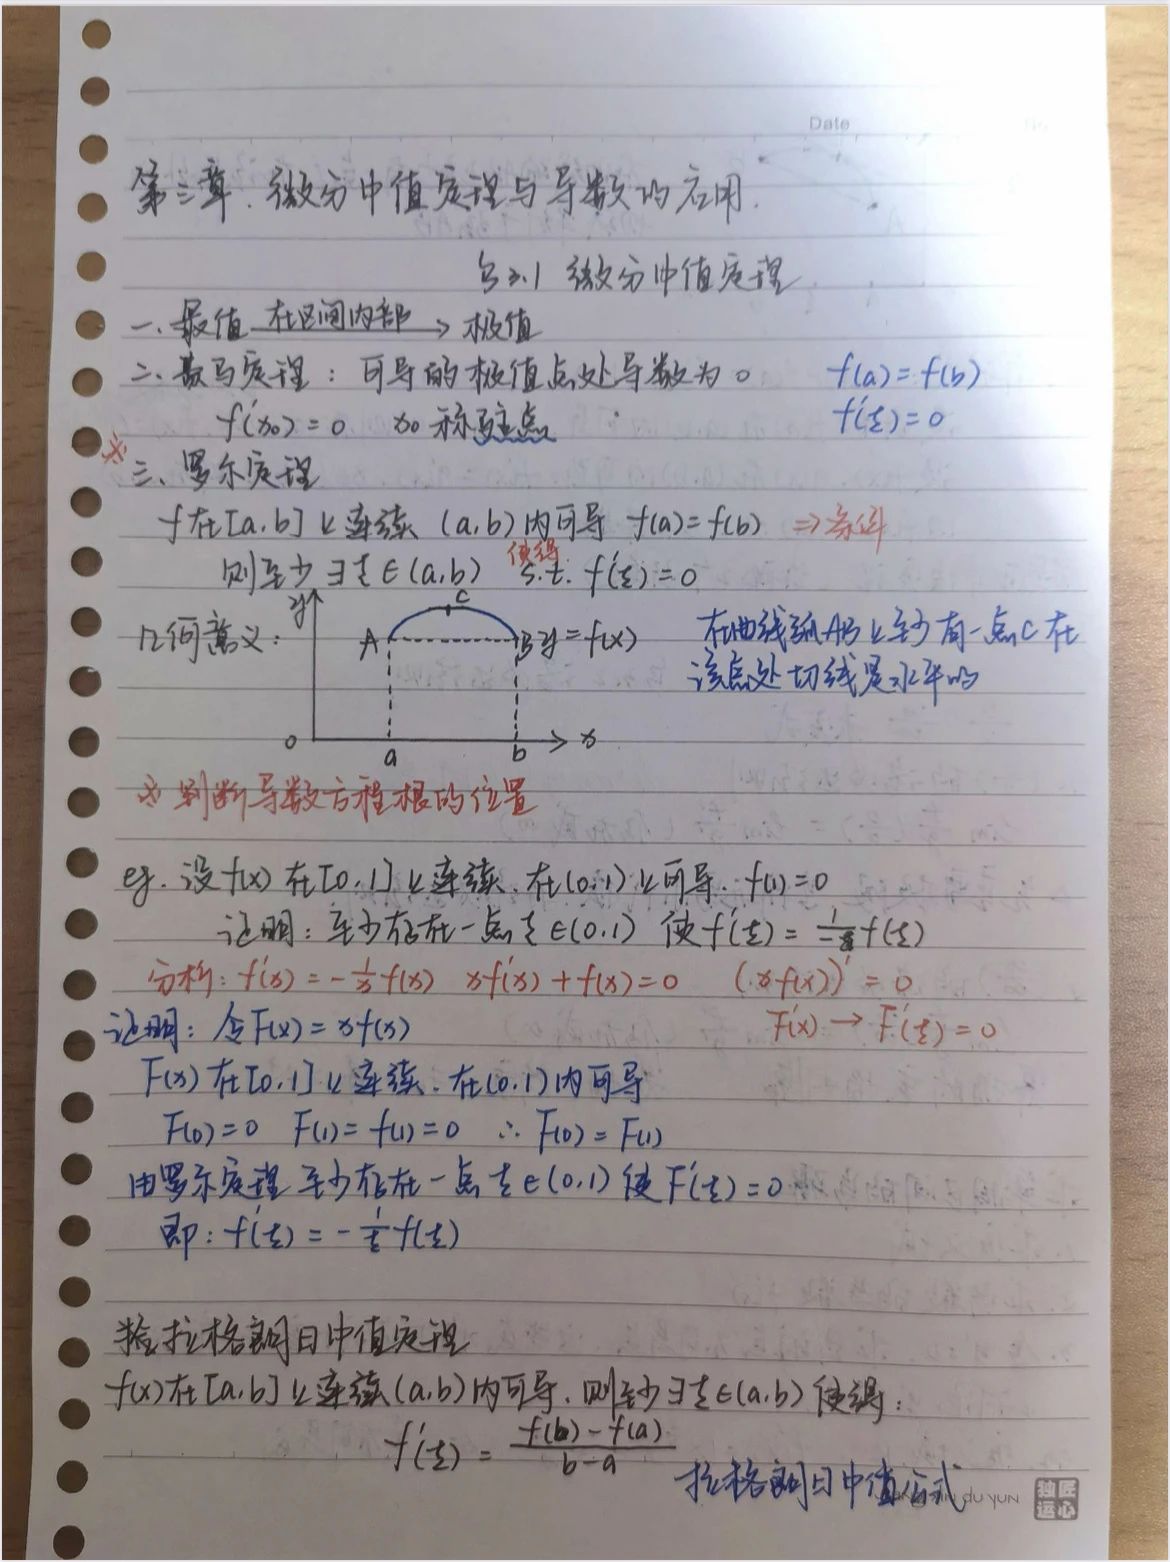 Date
第三章. 微分中值定理与导数的应用.
§3.1 微分中值定理
一. 最值 在区间内部 → 极值
二. 费马定理: 可导的极值点处导数为0 f(a)=f(b)
f'(x₀)=0 x₀ 称驻点 f'(ξ)=0
※
三. 罗尔定理
f在[a,b]上连续 (a,b)内可导 f(a)=f(b) ⇒条件
使得
则至少∃ξ∈(a,b) s.t. f'(ξ)=0
几何意义: y A C B y=f(x) 在曲线弧AB上至少有一点C 在
该点处切线是水平的
0 a b x
※ 判断导数方程根的位置
eg. 设f(x)在[0,1]上连续. 在(0,1)上可导. f(1)=0
证明: 至少存在一点ξ∈(0,1) 使f'(ξ)=-1/ξ f(ξ)
分析: f'(x)=-1/x f(x) xf'(x)+f(x)=0 (xf(x))'=0
证明: 令F(x)=xf(x) F'(x)→F'(ξ)=0
F(x)在[0,1]上连续. 在(0,1)内可导
F(0)=0 F(1)=f(1)=0 ∴F(0)=F(1)
由罗尔定理 至少存在一点ξ∈(0,1)使F'(ξ)=0
即: f'(ξ)=-1/ξ f(ξ)
拉格朗日中值定理
f(x)在[a,b]上连续(a,b)内可导. 则至少∃ξ∈(a,b)使得:
f'(ξ)=(f(b)-f(a))/(b-a)
拉格朗日中值公式
du yun
独匠
运心